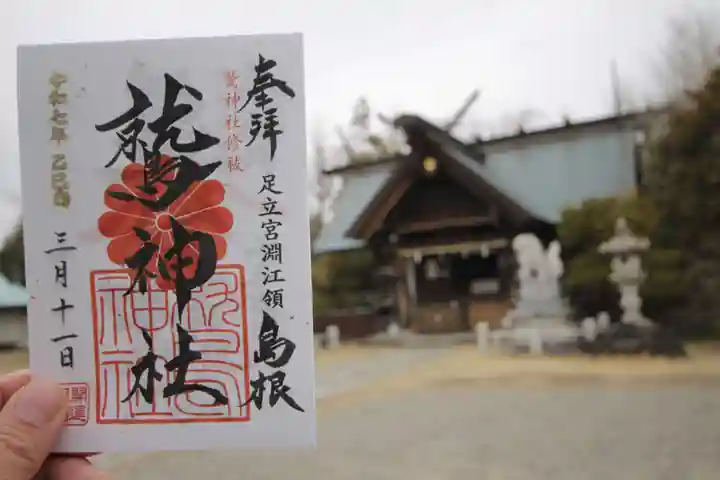 奉拝
足立宮淵江領
島根
鷲神社修祓
鷲神社
令和七年 乙巳歳
三月十一日